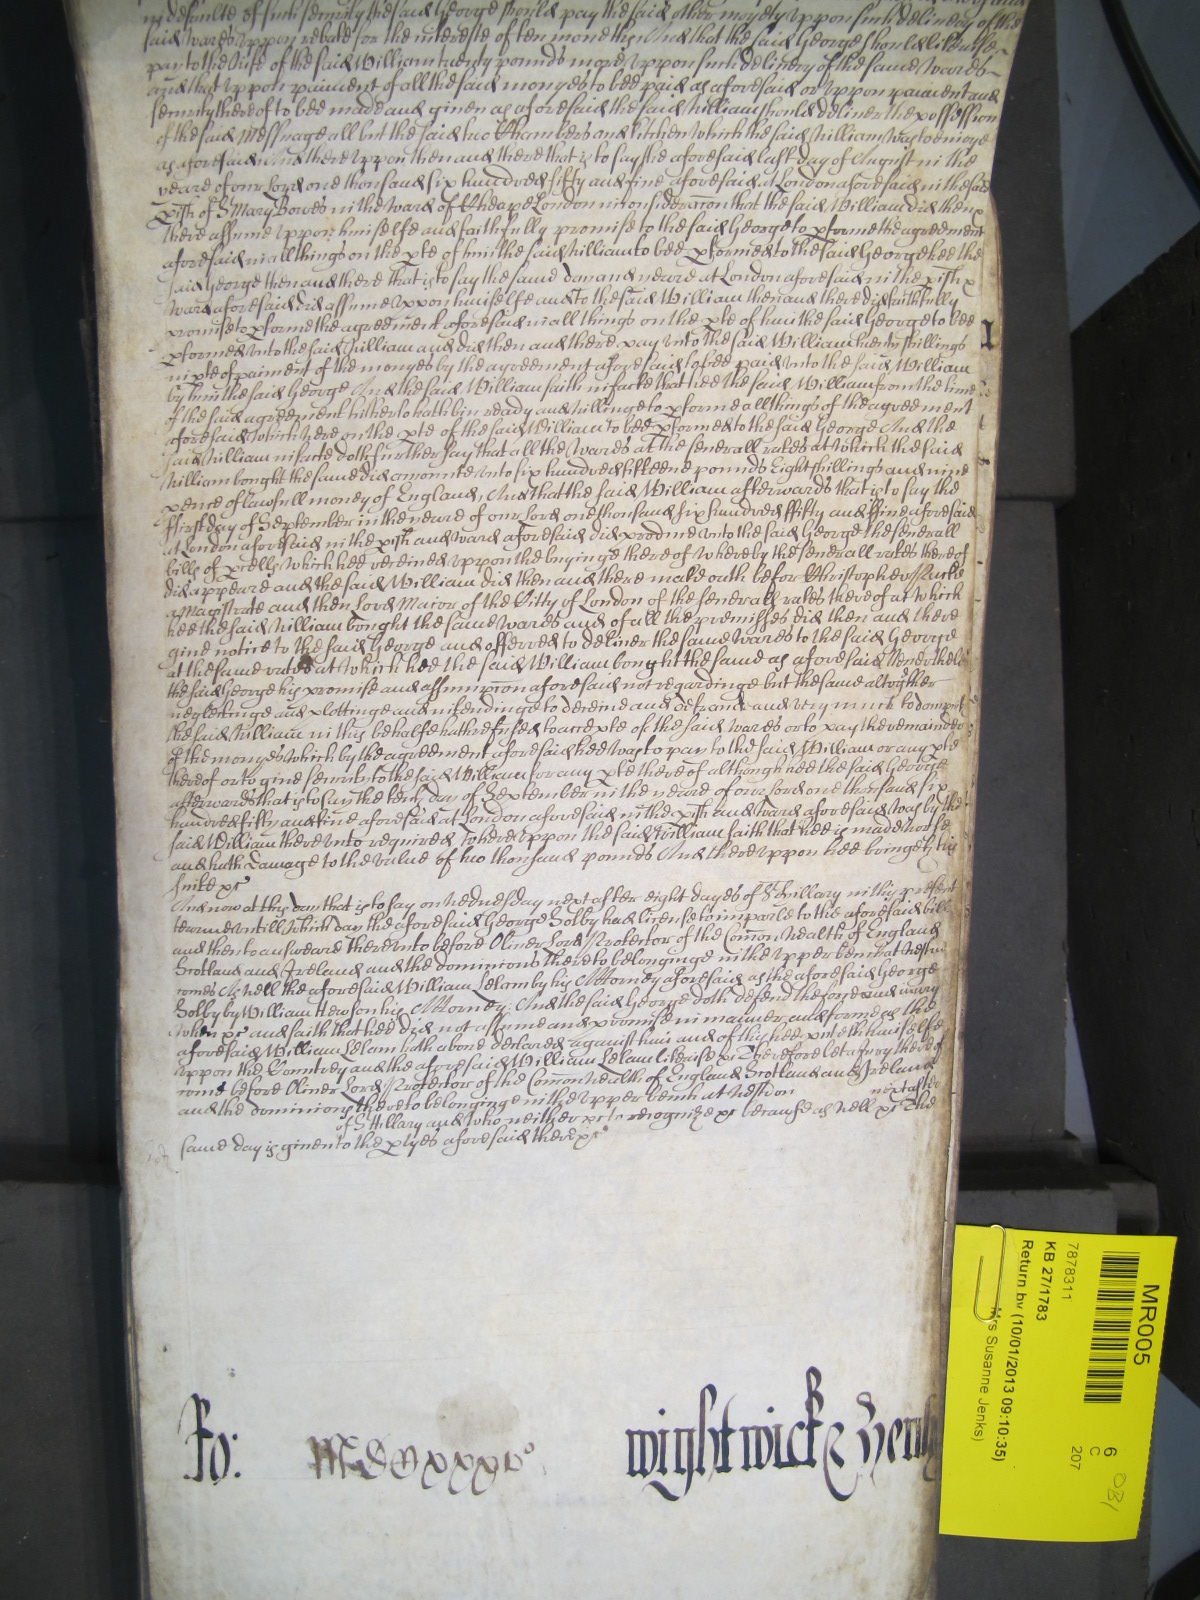 in defaulte of such security the said George should pay the said other moyety uppon such delivery of the
said wares uppon rebate for the intereste of ten moneths And that the said George should likewise
pay to the use of the said William twenty pounds more uppon such delivery of the same wares
and that uppon paiment of all the said monyes to bee paid as aforesaid or uppon paiment and
security thereof to bee made and given as aforesaid the said William should deliver the possession
of the said Messuage all but the said two Chambers and kitchen which the said William was to enioye
as aforesaid And thereuppon then and there that is to say the aforesaid last day of August in the
yeare of our Lord one thousand six hundred fifty and five aforesaid at London aforesaid in the said
pish of St Mary Bowes in the ward of Cheape London in consideracon that the said William did then
there assume uppon himselfe and faithfully promise to the said George to pforme the agreement
aforesaid in all things on the pte of him the said William to bee pformed to the said George hee the
said George then and there that is to say the same day and yeare at London aforesaid in the pish
ward aforesaid did assume uppon himselfe and to the said William then and there did faithfully
promise to pforme the agreement aforesaid in all things on the pte of him the said George to bee
pformed unto the said William and did then and there pay unto the said William twenty shillings
in pte of paiment of the monyes by the agreement aforesaid to bee paid unto the said William
by him the said George And the said William saith in facte that hee the said William from the time
of the said agreement hitherto hath bin ready and willinge to pforme all things of the agreement
aforesaid which were on the pte of the said William to bee pformed to the said George And the
said William in facte doth further say that all the wares at the severall rates at which the said
William bought the same did amounte unto six hundred fifteene pounds Eight shillings and nine
pence of lawfull money of England, And that the said William afterwards that is to say the
ffirst day of September in the yeare of our Lord one thousand six hundred ffifty and ffive aforesaid
at London aforesaid in the pish and ward aforesaid did produce unto the said George the severall
bills of pcells which hee received uppon the buyinge thereof whereby the severall rates thereof
did appeare and the said William did then and there make oath before Christopher Packe
a Magistrate and then Lord Maior of the Citty of London of the severall rates thereof at which
hee the said William bought the same wares and of all the premisses did then and there
give notice to the said George and offerred to deliver the same wares to the said George
at the same rates at which hee the said William bought the same as aforesaid Neverthelesse
the said George his promise and assumpcon aforesaid not regardinge but the same altogither
neglectinge and plottinge and intendinge to deceive and defraude
the said William in this behalfe hath refused to accepte of the said wares or to pay the remainder
of the monyes which by the agreement aforesaid hee was to pay to the said William or any pte
thereof or to give security to the said William for any pte thereof although hee the said George
afterwards that is to say the tenth day of September in the yeare of our Lord one thousand six
hundred fifty and five aforesaid at London aforesaid in the pish and ward aforesaid was by the
said William thereunto required, whereuppon the said William saith that hee is made worse
and hath Damage to the value of two thousand pounds And thereuppon hee bringeth his
suite &c
And now at this day that is to say on wednesday next after eight dayes of St Hillary in this present
tearme untill which day the aforesaid George Solby had license to imparle to the aforesaid bill
and then to answeare thereunto before Oliver Lord Protector of the Comon wealth of England
Scotland and Ireland and the dominions thereto belonginge in the upper bench at westm
comes As well the aforesaid William Lelam by his Attorney aforesaid as the aforesaid George
Solby by William Hewson his Attorney, And the said George doth defend the force and iniury
when &c and saith that hee did not assume and promise in manner and forme as the
aforesaid William Lelam hath above declared against him and of this hee putteth himselfe
uppon the Countrey and the aforesaid William Lelam likewise &c Therefore let a Jury thereof
come before Oliver Lord Protector of the Comonwealth of England Scotland and Ireland
and the dominions thereto belonginge in the upper bench at westm on next after
of St Hillary and who neither &c to recognize &c because as well &c The
same day is given to the ptyes aforesaid there &c
Ro:
wightwick & Henl
MR005
7878311
KB 27/1783
Return by (10/01/2013 09:10:35)
Mrs Susanne Jenks)
6
C
207